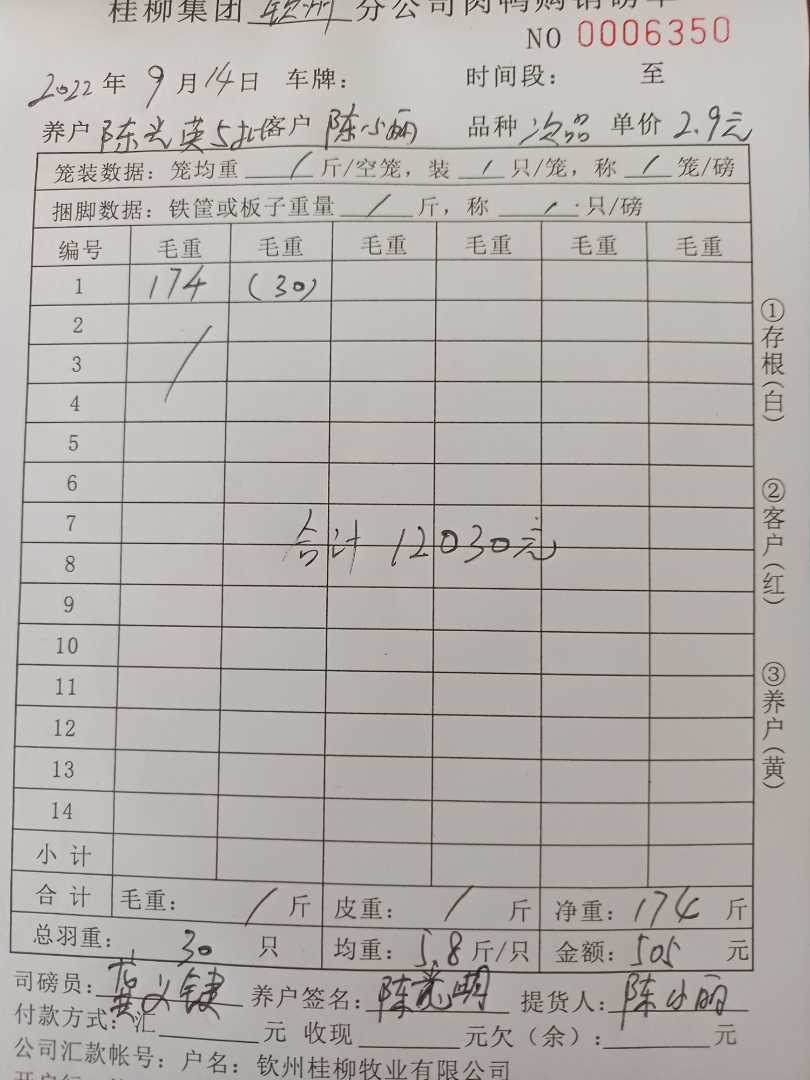 桂柳集团 钦州 分公司肉鸭购销磅单
NO 0006350
2022年9月14日 车牌： 时间段： 至
养户 陈光英5批 客户 陈小丽 品种 次品 单价 2.9元
笼装数据：笼均重 / 斤/空笼，装 / 只/笼，称 / 笼/磅
捆脚数据：铁筐或板子重量 / 斤，称 / 只/磅
编号 毛重 毛重 毛重 毛重 毛重 毛重
1 174 (30)
2
3
4
5
6
7
合计 12030元
8
9
10
11
12
13
14
小计
合计 毛重： / 斤 皮重： / 斤 净重：174 斤
总羽重： 30 只 均重：5.8 斤/只 金额：505 元
司磅员： 养户签名：陈 明 提货人：陈小丽
付款方式：汇 元 收现 元欠（余）： 元
公司汇款帐号：户名：钦州桂柳牧业有限公司
①存根（白）
②客户（红）
③养户（黄）